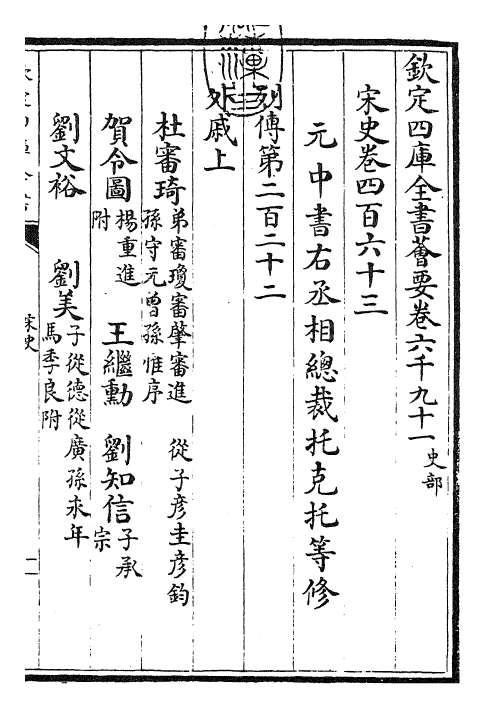 欽定四庫全書薈要卷六千九十一史部
宋史卷四百六十三
元中書右丞相總裁托克托等修
列傳第二百二十二
外戚上
杜審琦弟審瓊審肇審進 從子彥圭彥鈞
孫守元曾孫惟序
賀令圖楊重進附 王繼勳 劉知信子承宗
劉文裕 劉美子從德從廣孫永年
馬季良附
宋史